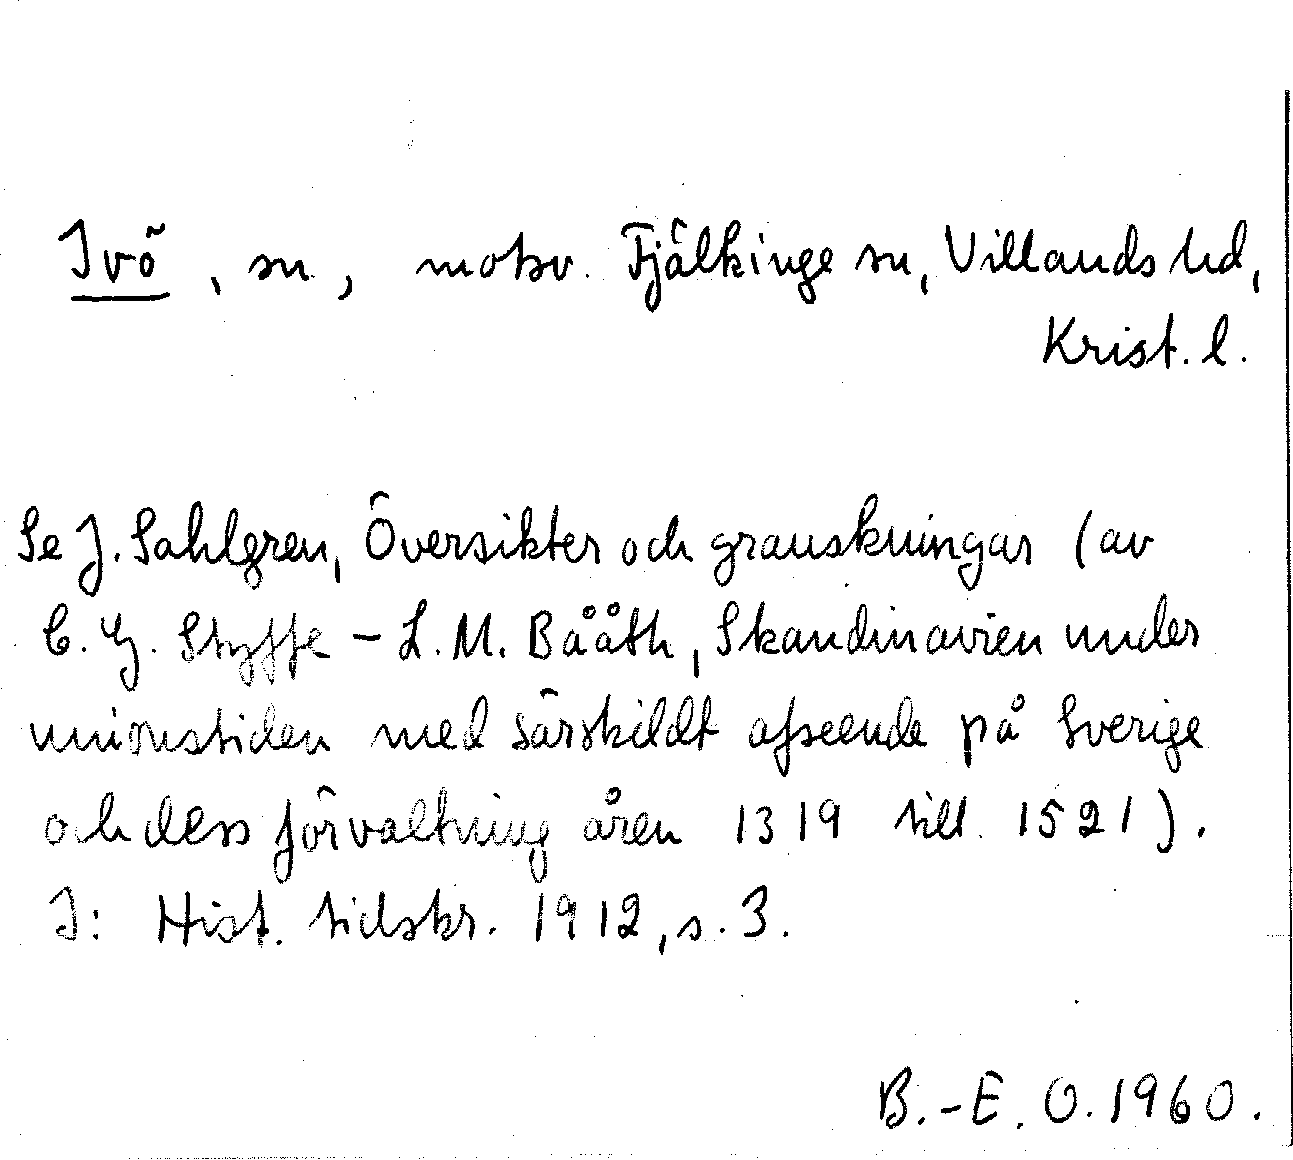 Ivö, sn, motsv. Fjälkinge sn, Villands hd,
Krist. l.
Se J. Sahlgren, Översikter och granskningar (av
C. G. Styffe – L. M. Bååth, Skandinavien under
unionstiden med särskildt afseende på Sverige
och dess förvaltning åren 1319 till 1521).
I: Hist. tidskr. 1912, s. 3.
B.-E. O. 1960.